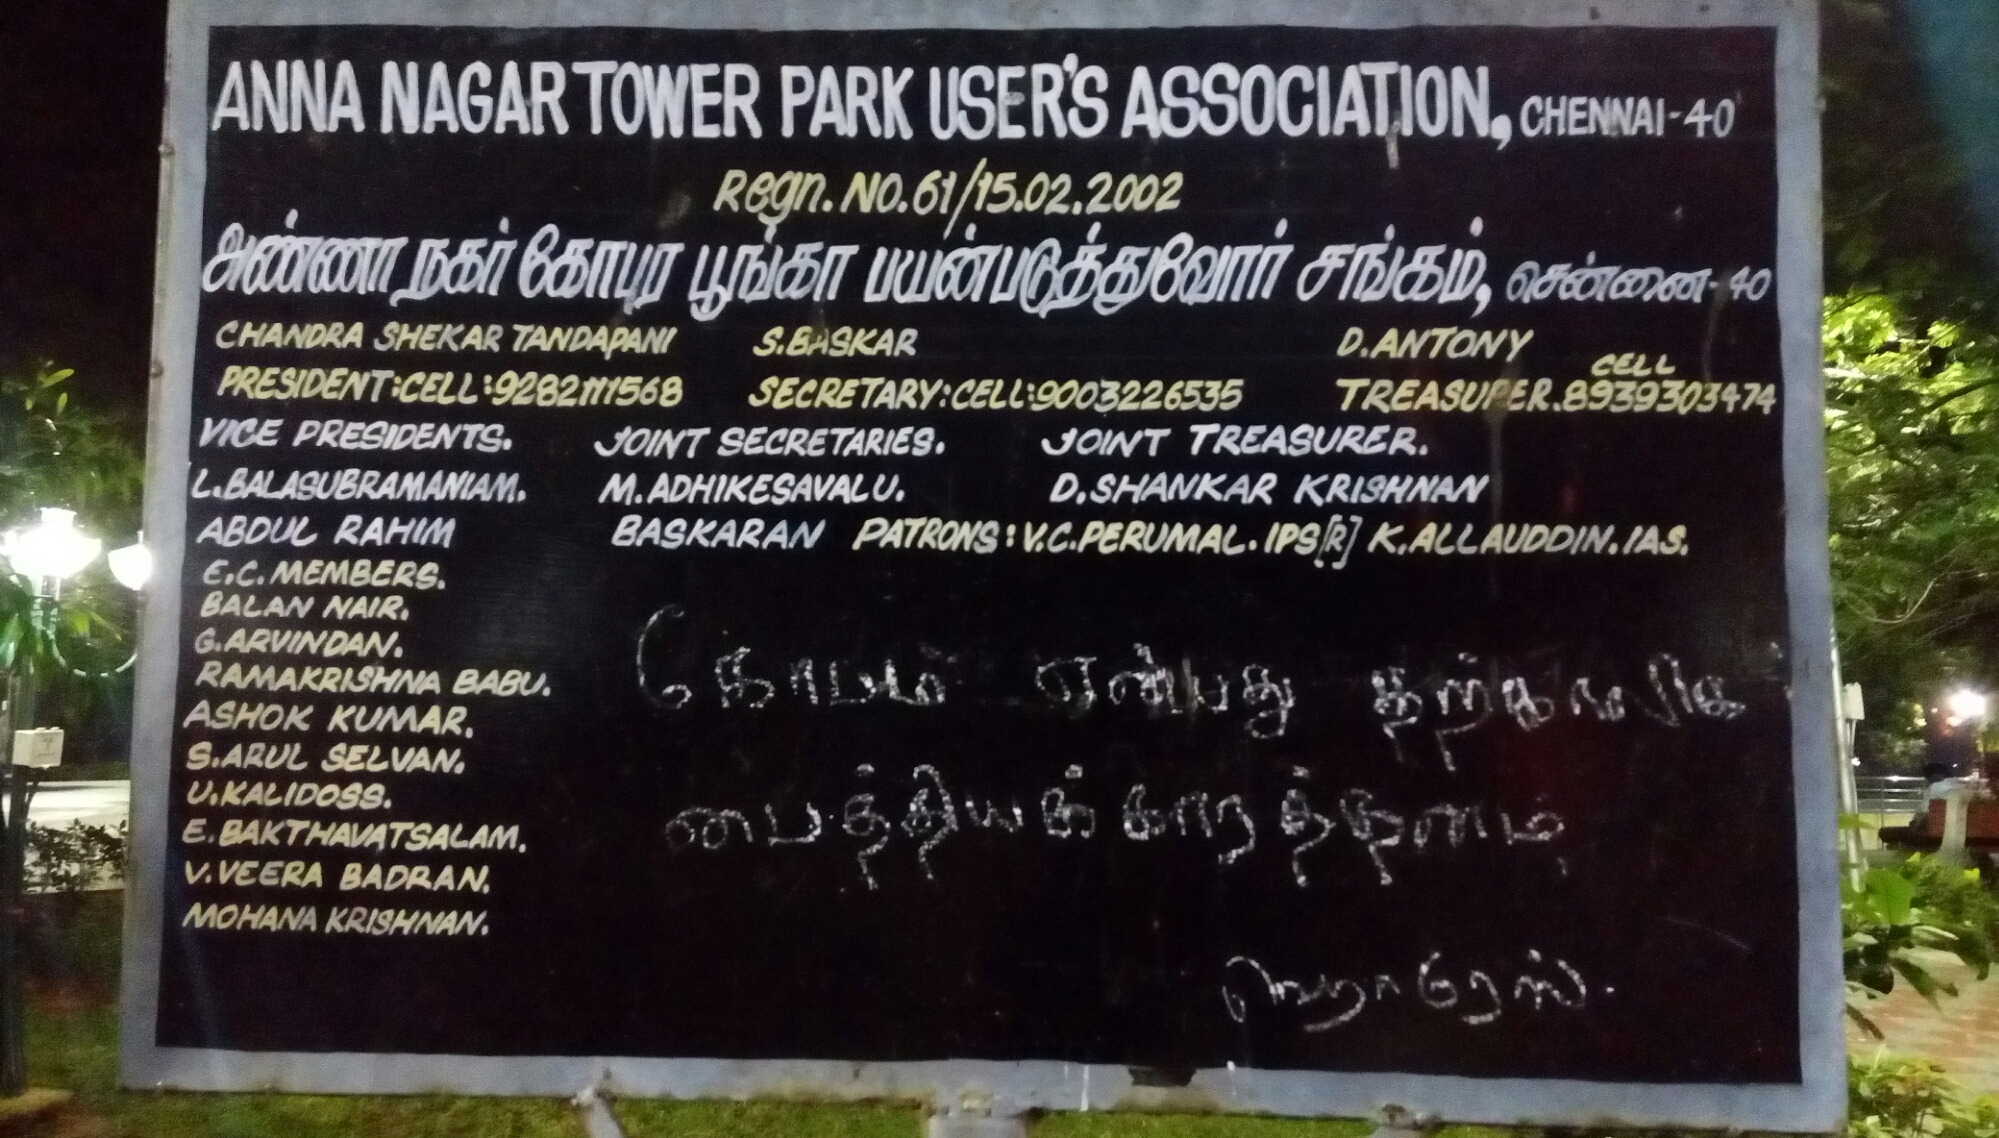 ANNA NAGAR TOWER PARK USER'S ASSOCIATION, CHENNAI-40
Regn. NO. 61/15.02.2002
அண்ணா நகர் கோபுர பூங்கா பயன்படுத்துவோர் சங்கம், சென்னை-40
CHANDRA SHEKAR TANDAPANI S.BASKAR D.ANTONY
PRESIDENT:CELL:9282111568 SECRETARY:CELL:9003226535 TREASURER. CELL 8939303474
VICE PRESIDENTS. JOINT SECRETARIES. JOINT TREASURER.
L.BALASUBRAMANIAM. M.ADHIKESAVALU. D.SHANKAR KRISHNAN
ABDUL RAHIM BASKARAN PATRONS: V.C.PERUMAL. IPS[R] K.ALLAUDDIN. IAS.
E.C. MEMBERS.
BALAN NAIR.
G.ARVINDAN.
RAMAKRISHNA BABU.
ASHOK KUMAR.
S.ARUL SELVAN.
U.KALIDOSS.
E.BAKTHAVATSALAM.
V.VEERA BADRAN.
MOHANA KRISHNAN.
கோபம் என்பது தற்காலிக
பைத்தியக்காரத்தனம்
ஹொரேஸ்.